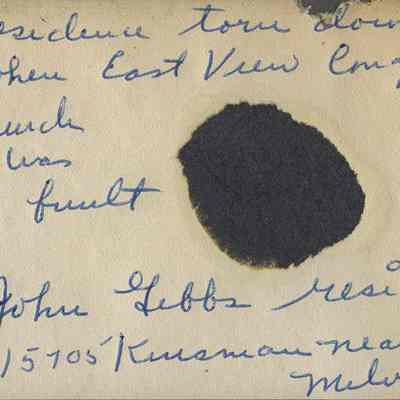 esidence torn dow
when East View Cong
urch
was
built
John Gibbs resi
15705 Kinsman nea
Melv